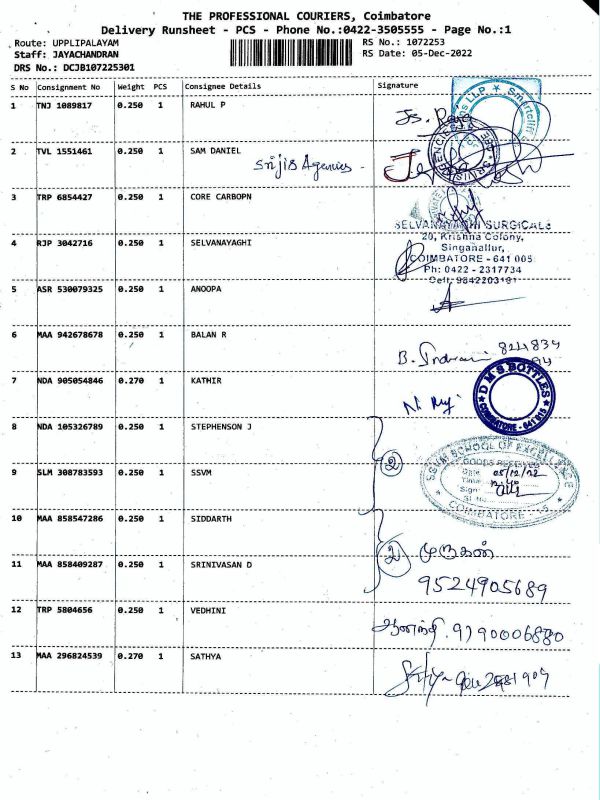 THE PROFESSIONAL COURIERS, Coimbatore
Delivery Runsheet - PCS - Phone No.:0422-3505555 - Page No.:1
Route: UPPLIPALAYAM
RS No.: 1072253
Staff: JAYACHANDRAN
RS Date: 05-Dec-2022
DRS No.: DCJB107225301
S No Consignment No Weight PCS Consignee Details Signature
1 TNJ 1089817 0.250 1 RAHUL P
LLP * Smartcliff
2 TVL 1551461 0.250 1 SAM DANIEL
Srijis Agencies -
3 TRP 6854427 0.250 1 CORE CARBOPN
SELVANAYAGHI SURGICALS
20, Krishna Colony,
Singanallur,
4 RJP 3042716 0.250 1 SELVANAYAGHI
COIMBATORE - 641 005
Ph: 0422 - 2317734
Cell: 9842203191
5 ASR 530079325 0.250 1 ANOOPA
6 MAA 942678678 0.250 1 BALAN R
7 NDA 905054846 0.270 1 KATHIR
DMS BOTTLES
COIMBATORE - 641 015
8 NDA 105326789 0.250 1 STEPHENSON J
9 SLM 308783593 0.250 1 SSVM
2
SSVM SCHOOL OF EXCELLENCE
GOODS RECEIVED
Date 05/12/22
Time
Sign
Sl. No.
COIMBATORE - 15
10 MAA 858547286 0.250 1 SIDDARTH
11 MAA 858409287 0.250 1 SRINIVASAN D
2 முருகன்
9524905689
12 TRP 5804656 0.250 1 VEDHINI
ஆனந்தி. 9190006880
13 MAA 296824539 0.270 1 SATHYA